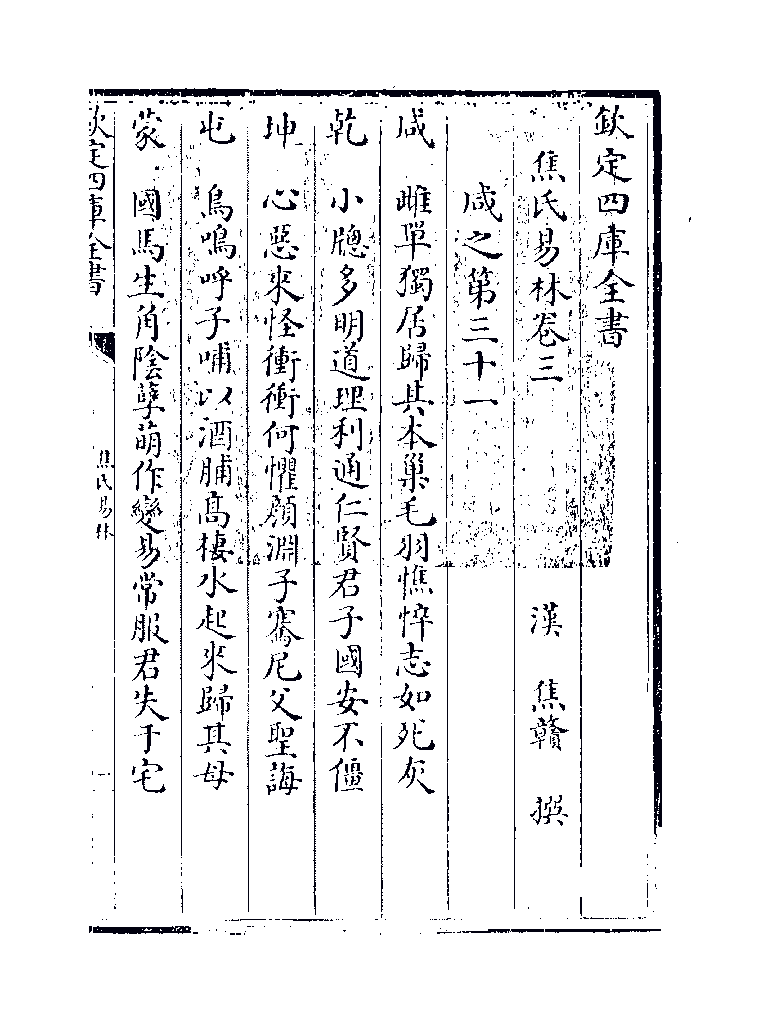 欽定四庫全書
焦氏易林卷三
漢 焦贛 撰
咸之第三十一
咸 雌單獨居歸其本巢毛羽憔悴志如死灰
乾 小牕多明道理利通仁賢君子國安不僵
坤 心惡來怪衝衝何懼顔淵子騫尼父聖誨
屯 鳥鳴呼子哺以酒脯高棲水起來歸其母
蒙 國馬生角陰孽萌作變易常服君失于宅
欽定四庫全書
焦氏易林
一